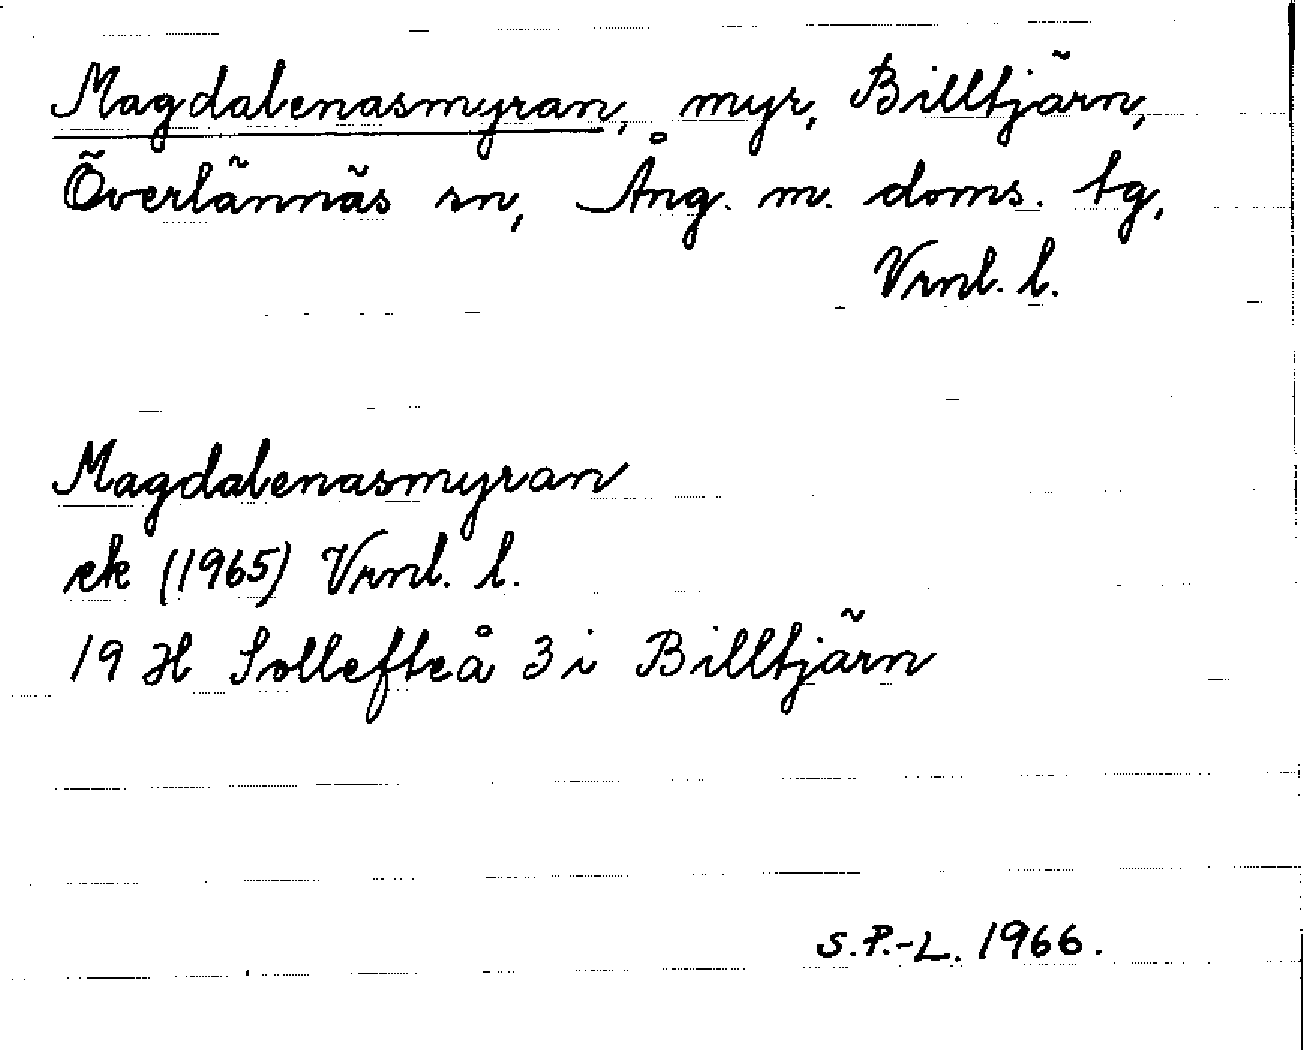 Magdalenasmyran, myr, Billtjärn,
Överlännäs sn, Ång. m. doms. tg,
Vrnl. l.
Magdalenasmyran
ek (1965) Vrnl. l.
19 H Sollefteå 3 i Billtjärn
S.P.-L. 1966.